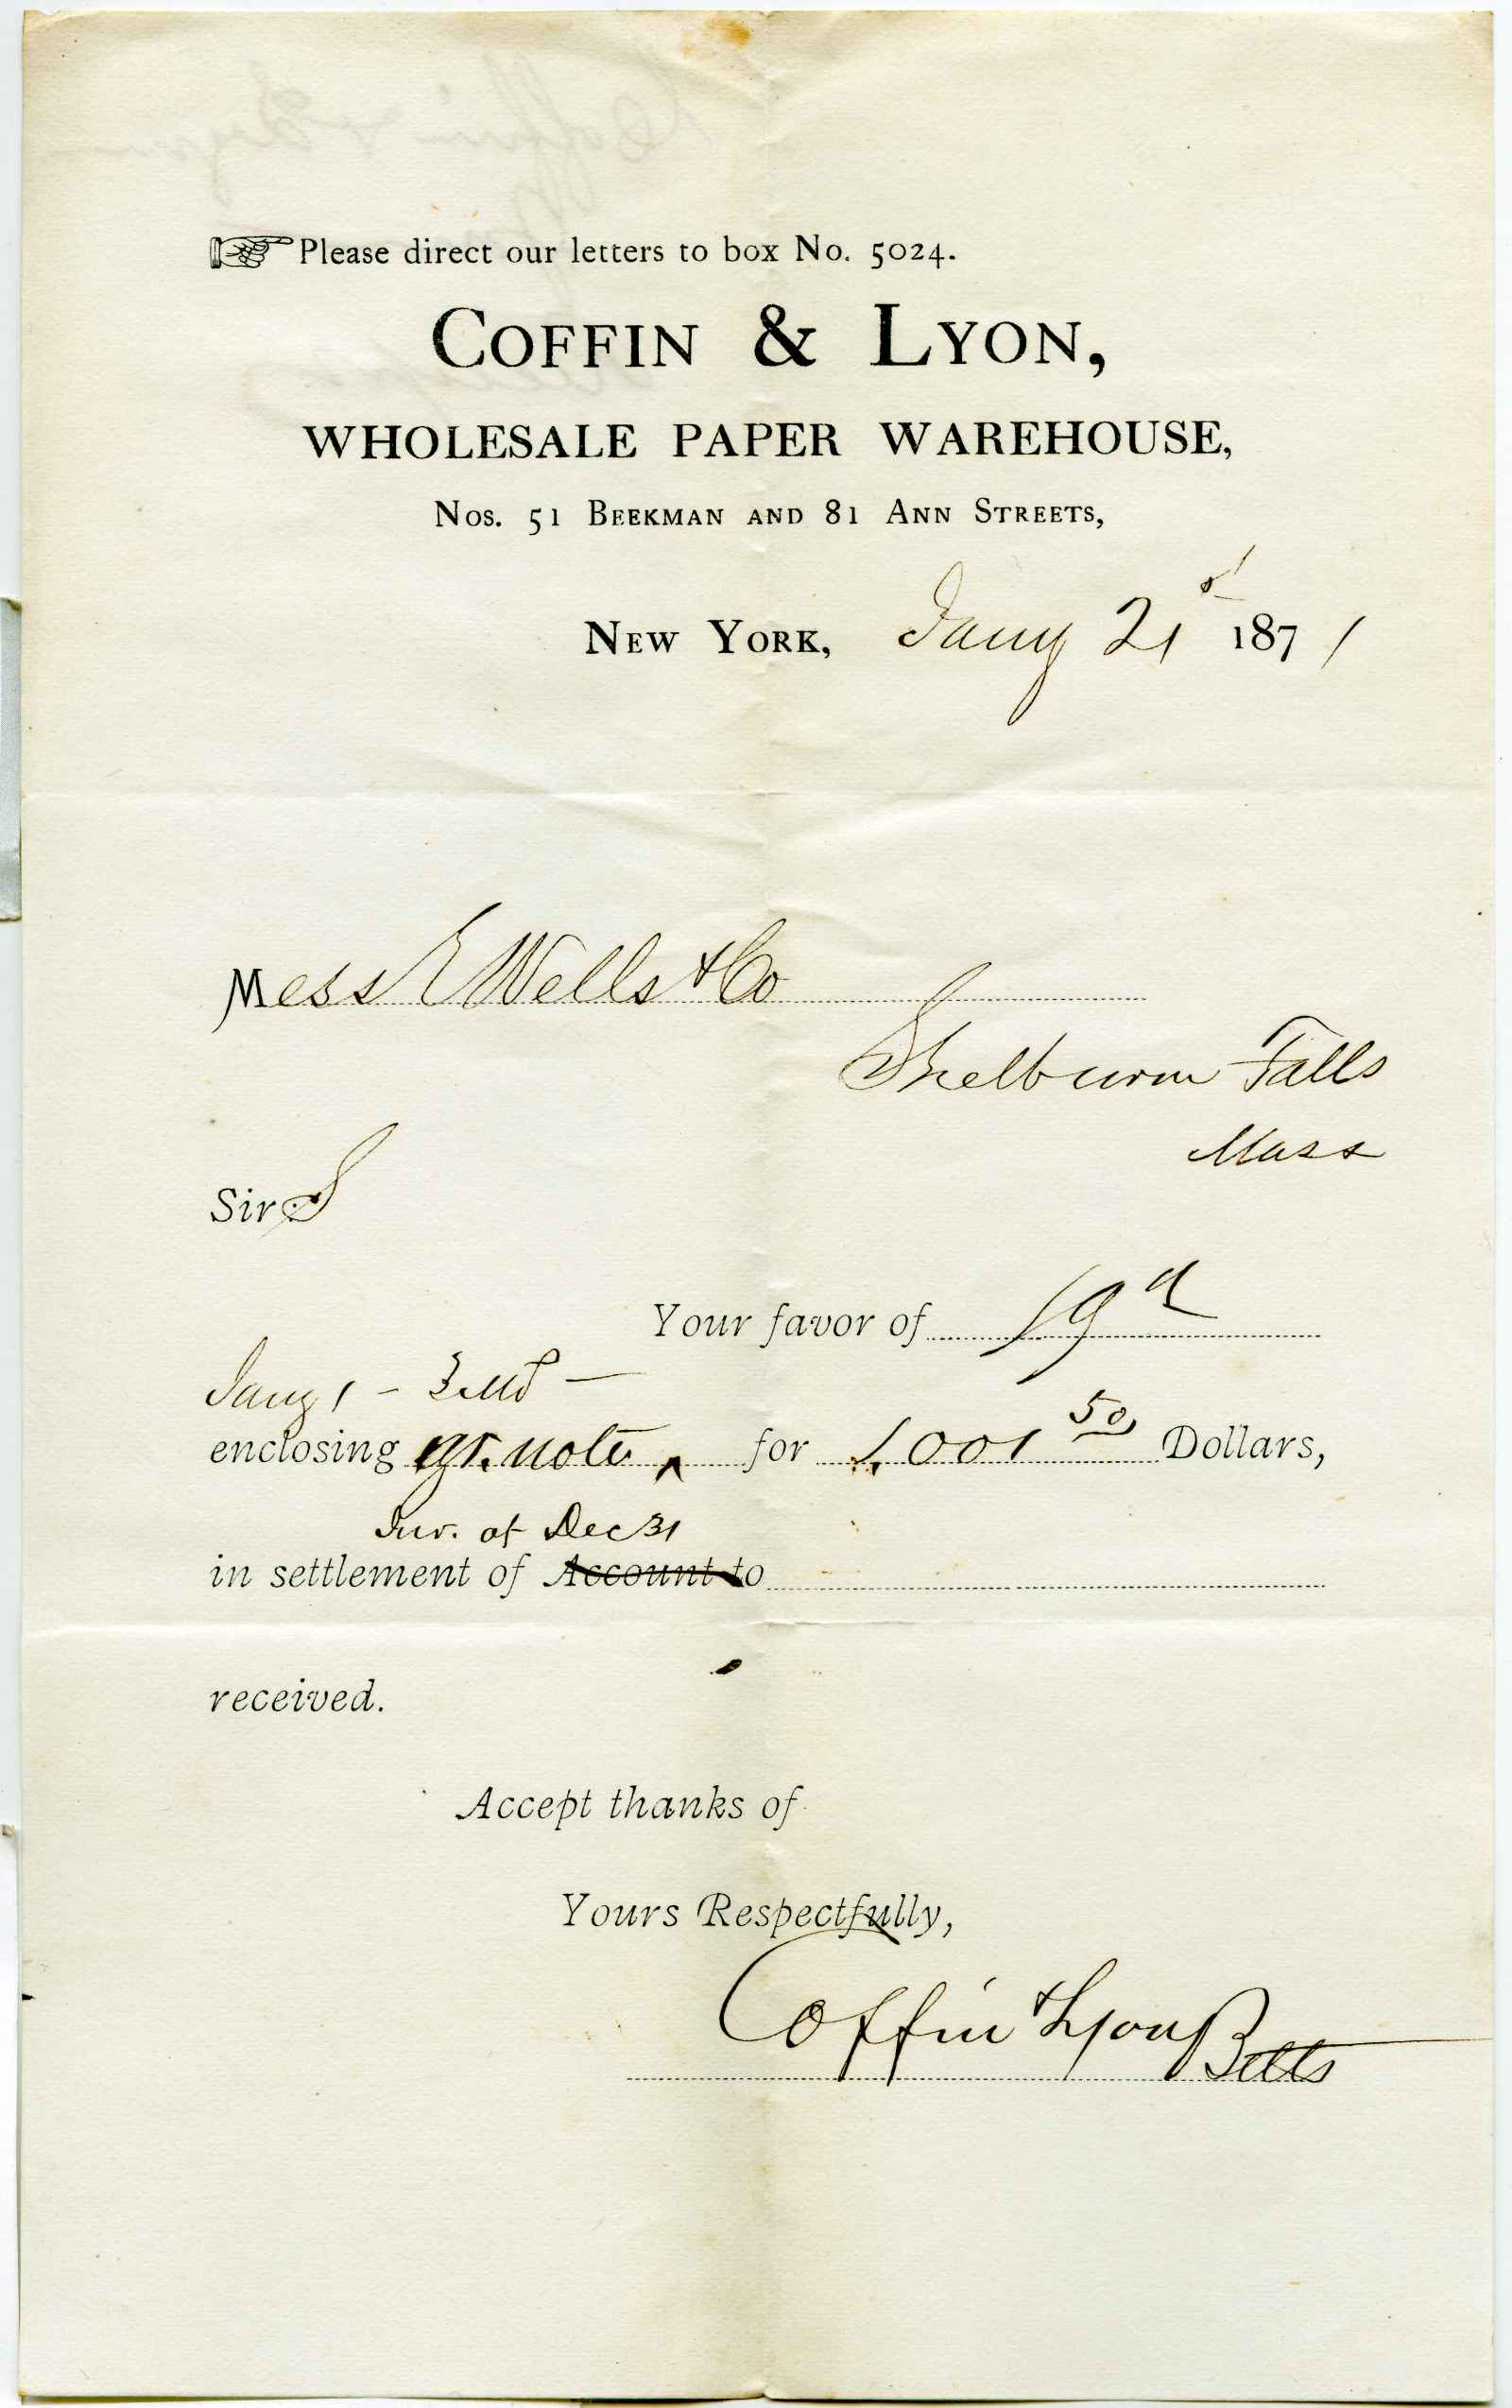 Please direct our letters to box No. 5024.
COFFIN & LYON,
WHOLESALE PAPER WAREHOUSE,
Nos. 51 BEEKMAN AND 81 ANN STREETS,
NEW YORK, Jany 21st 1871
Mess E Wells & Co
Shelburn Falls
Mass
Sirs
Your favor of 19th
Jany 1 - 3 Mo -
enclosing yr. note ^ for 1,001 50 Dollars,
Inv. of Dec 31
in settlement of Account to
received.
Accept thanks of
Yours Respectfully,
Coffin & Lyon
Betts